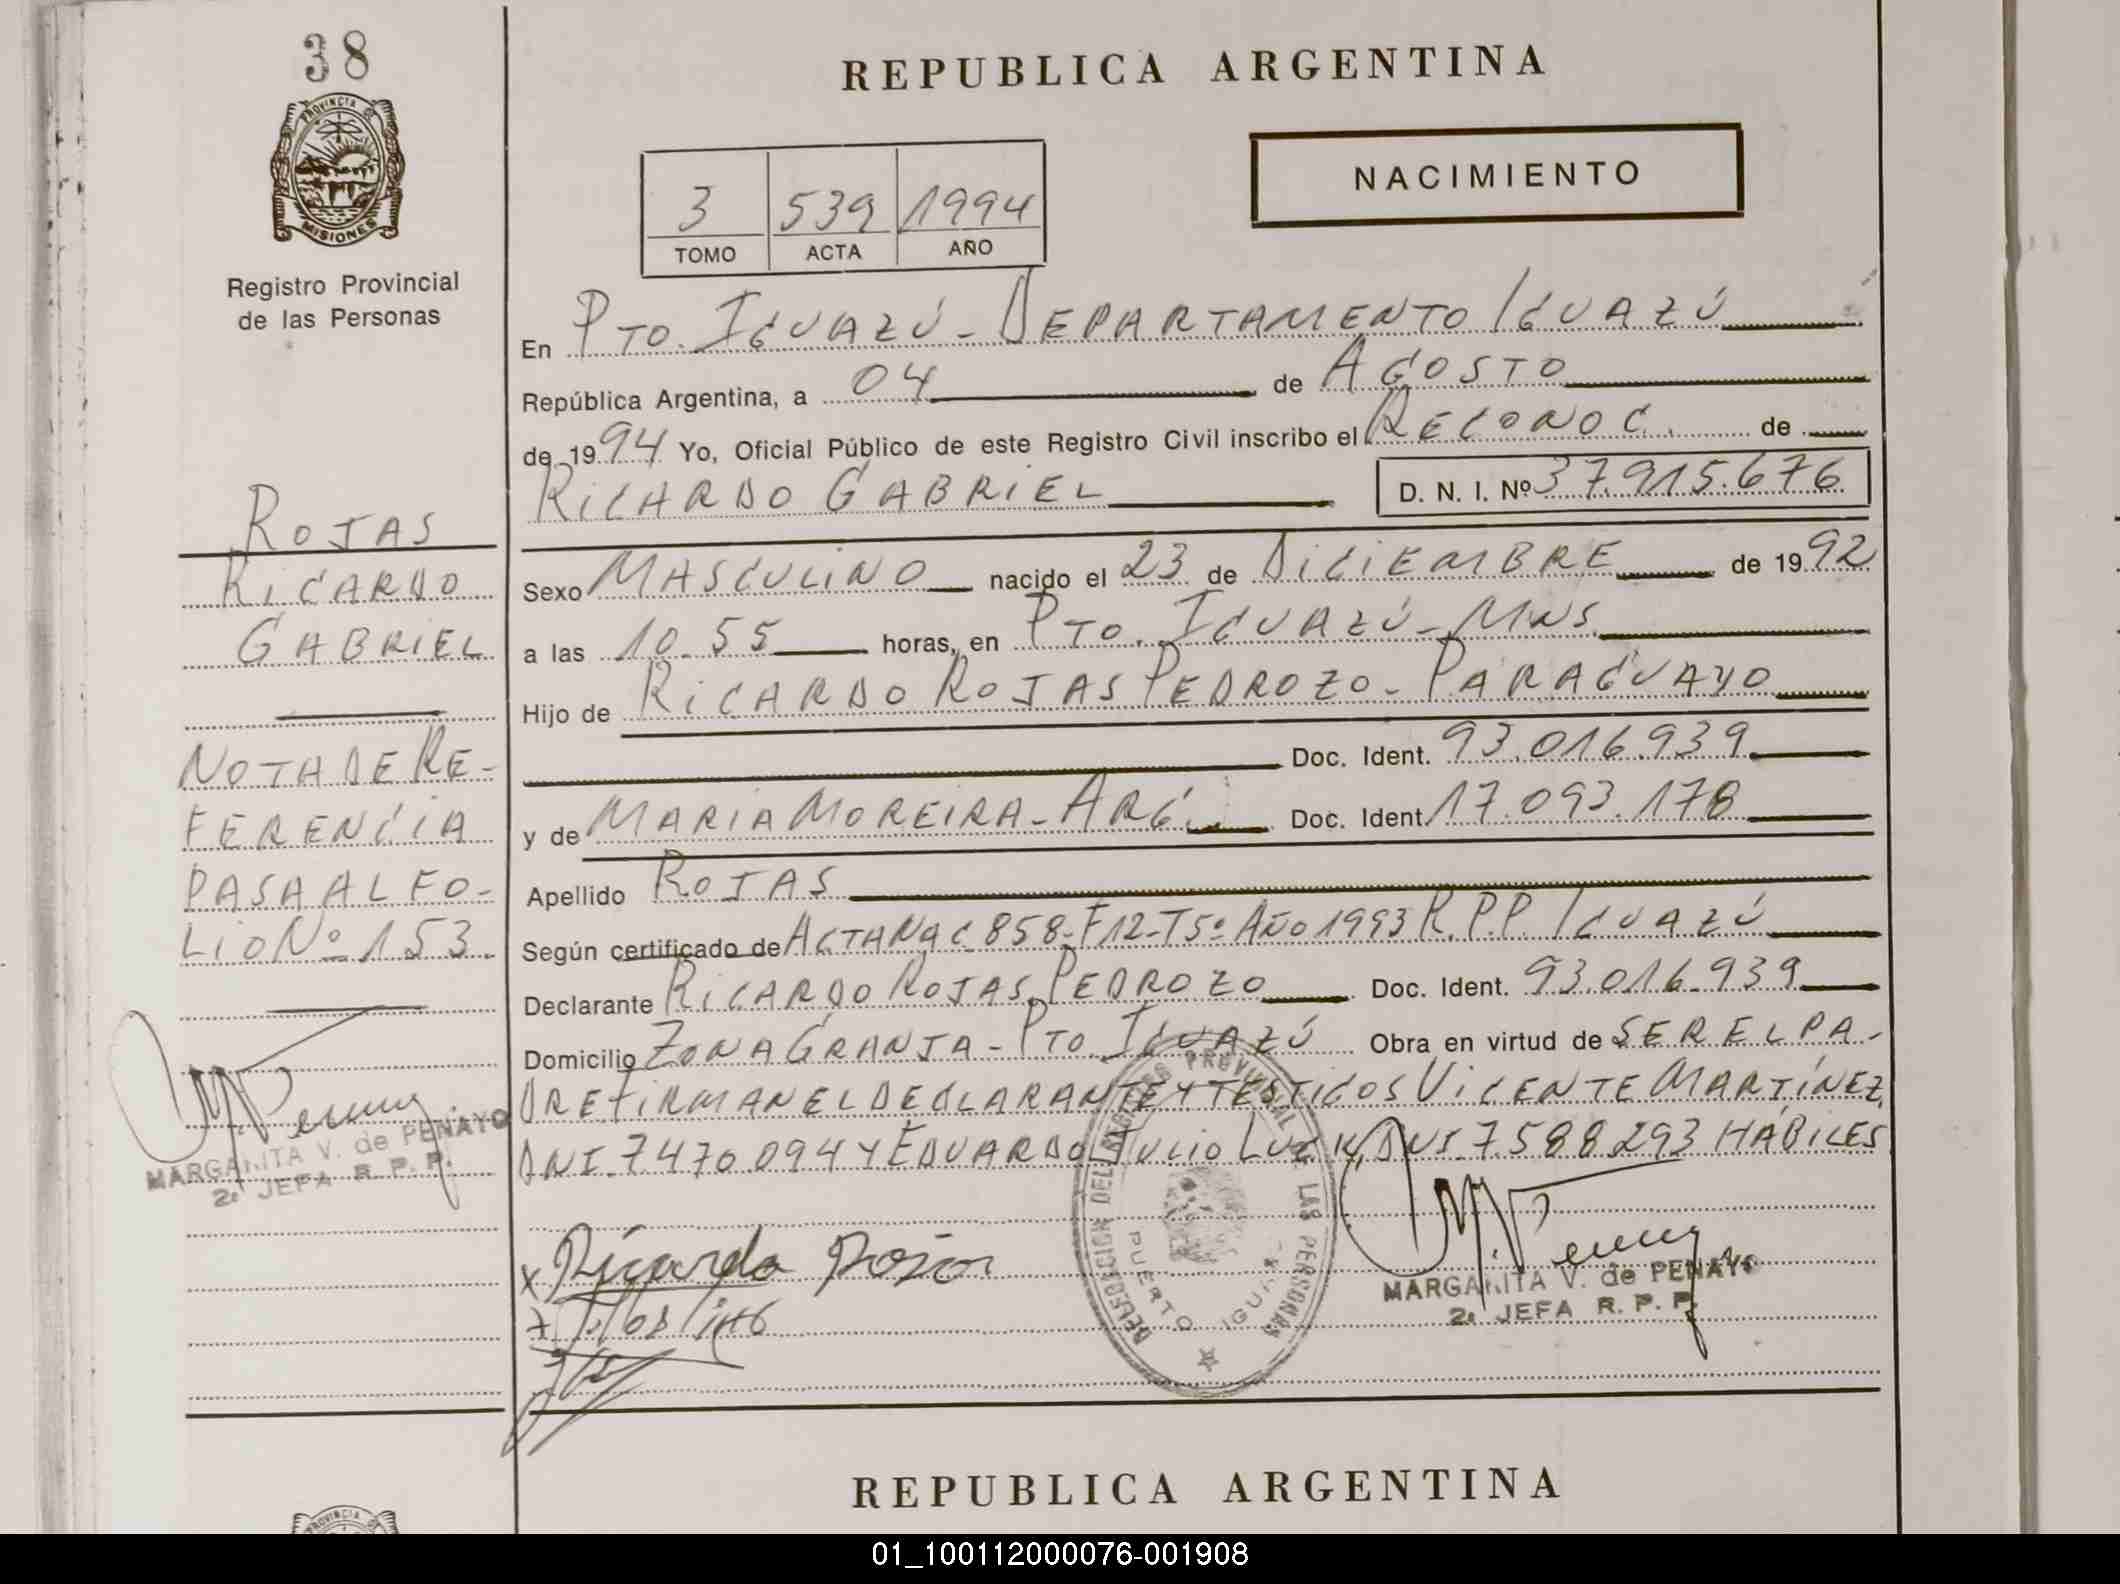 38
REPUBLICA ARGENTINA
PROVINCIA DE
MISIONES
NACIMIENTO
3 539 1994
TOMO ACTA AÑO
Registro Provincial
de las Personas
En PTO. IGUAZÚ - DEPARTAMENTO IGUAZÚ
República Argentina, a 04 de AGOSTO
de 1994 Yo, Oficial Público de este Registro Civil inscribo el RECONOC. de
RICARDO GABRIEL D. N. I. Nº 37.915.676
ROJAS
RICARDO
GABRIEL
NOTA DE RE-
FERENCIA
PASA AL FO-
LIO Nº 153.
Sexo MASCULINO nacido el 23 de DICIEMBRE de 1992
a las 10.55 horas, en PTO. IGUAZÚ - MNS.
Hijo de RICARDO ROJAS PEDROZO - PARAGUAYO
Doc. Ident. 93.016.939
y de MARIA MOREIRA - ARG. Doc. Ident. 17.093.178
Apellido ROJAS
Según certificado de ACTA NAC 858 - F12 - T5º AÑO 1993 R.P.P. IGUAZÚ
Declarante RICARDO ROJAS PEDROZO Doc. Ident. 93.016.939
Domicilio ZONA GRANJA - PTO IGUAZÚ Obra en virtud de SER EL PA-
DRE FIRMAN EL DECLARANTE Y TESTIGOS VICENTE MARTÍNEZ
DNI. 7470094 Y EDUARDO JULIO DNI. 7588293 HÁBILES
MARGARITA V. de PENAYO
2ª JEFA R. P. P.
Ricardo Rojas
DELEGACION DEL REGISTRO PROVINCIAL DE LAS PERSONAS
PUERTO IGUAZU
MARGARITA V. de PENAYO
2ª JEFA R. P. P.
REPUBLICA ARGENTINA
PROVINCIA DE
01_100112000076-001908